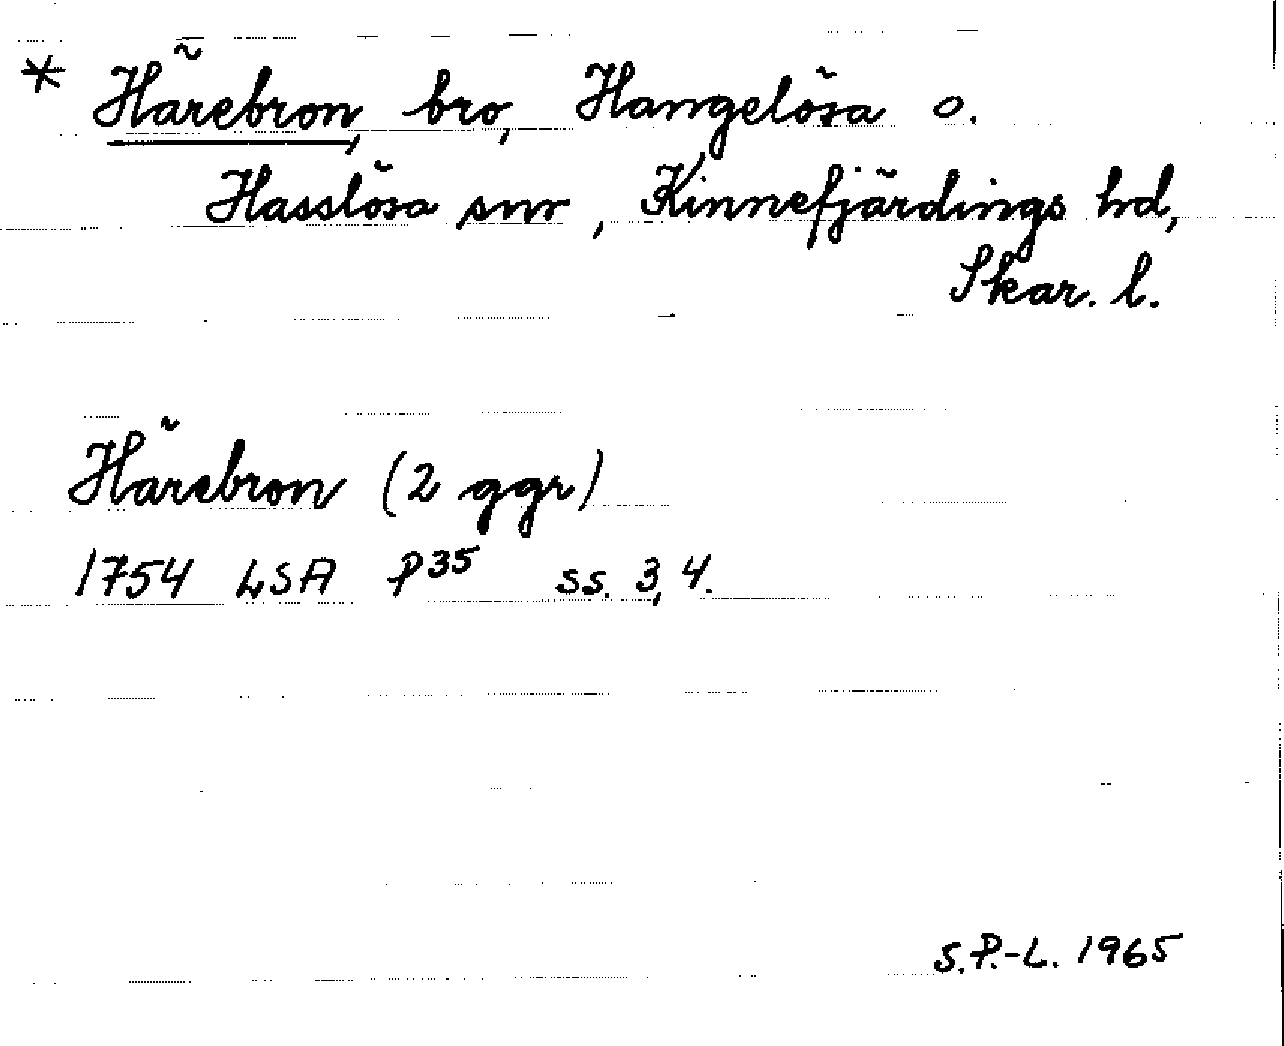 * Härebron, bro, Hangelösa o.
Hasslösa snr, Kinnefjärdings hd,
Skar. l.
Härebron (2 ggr)
1754 LSA P35 ss. 3, 4.
S.P.-L. 1965